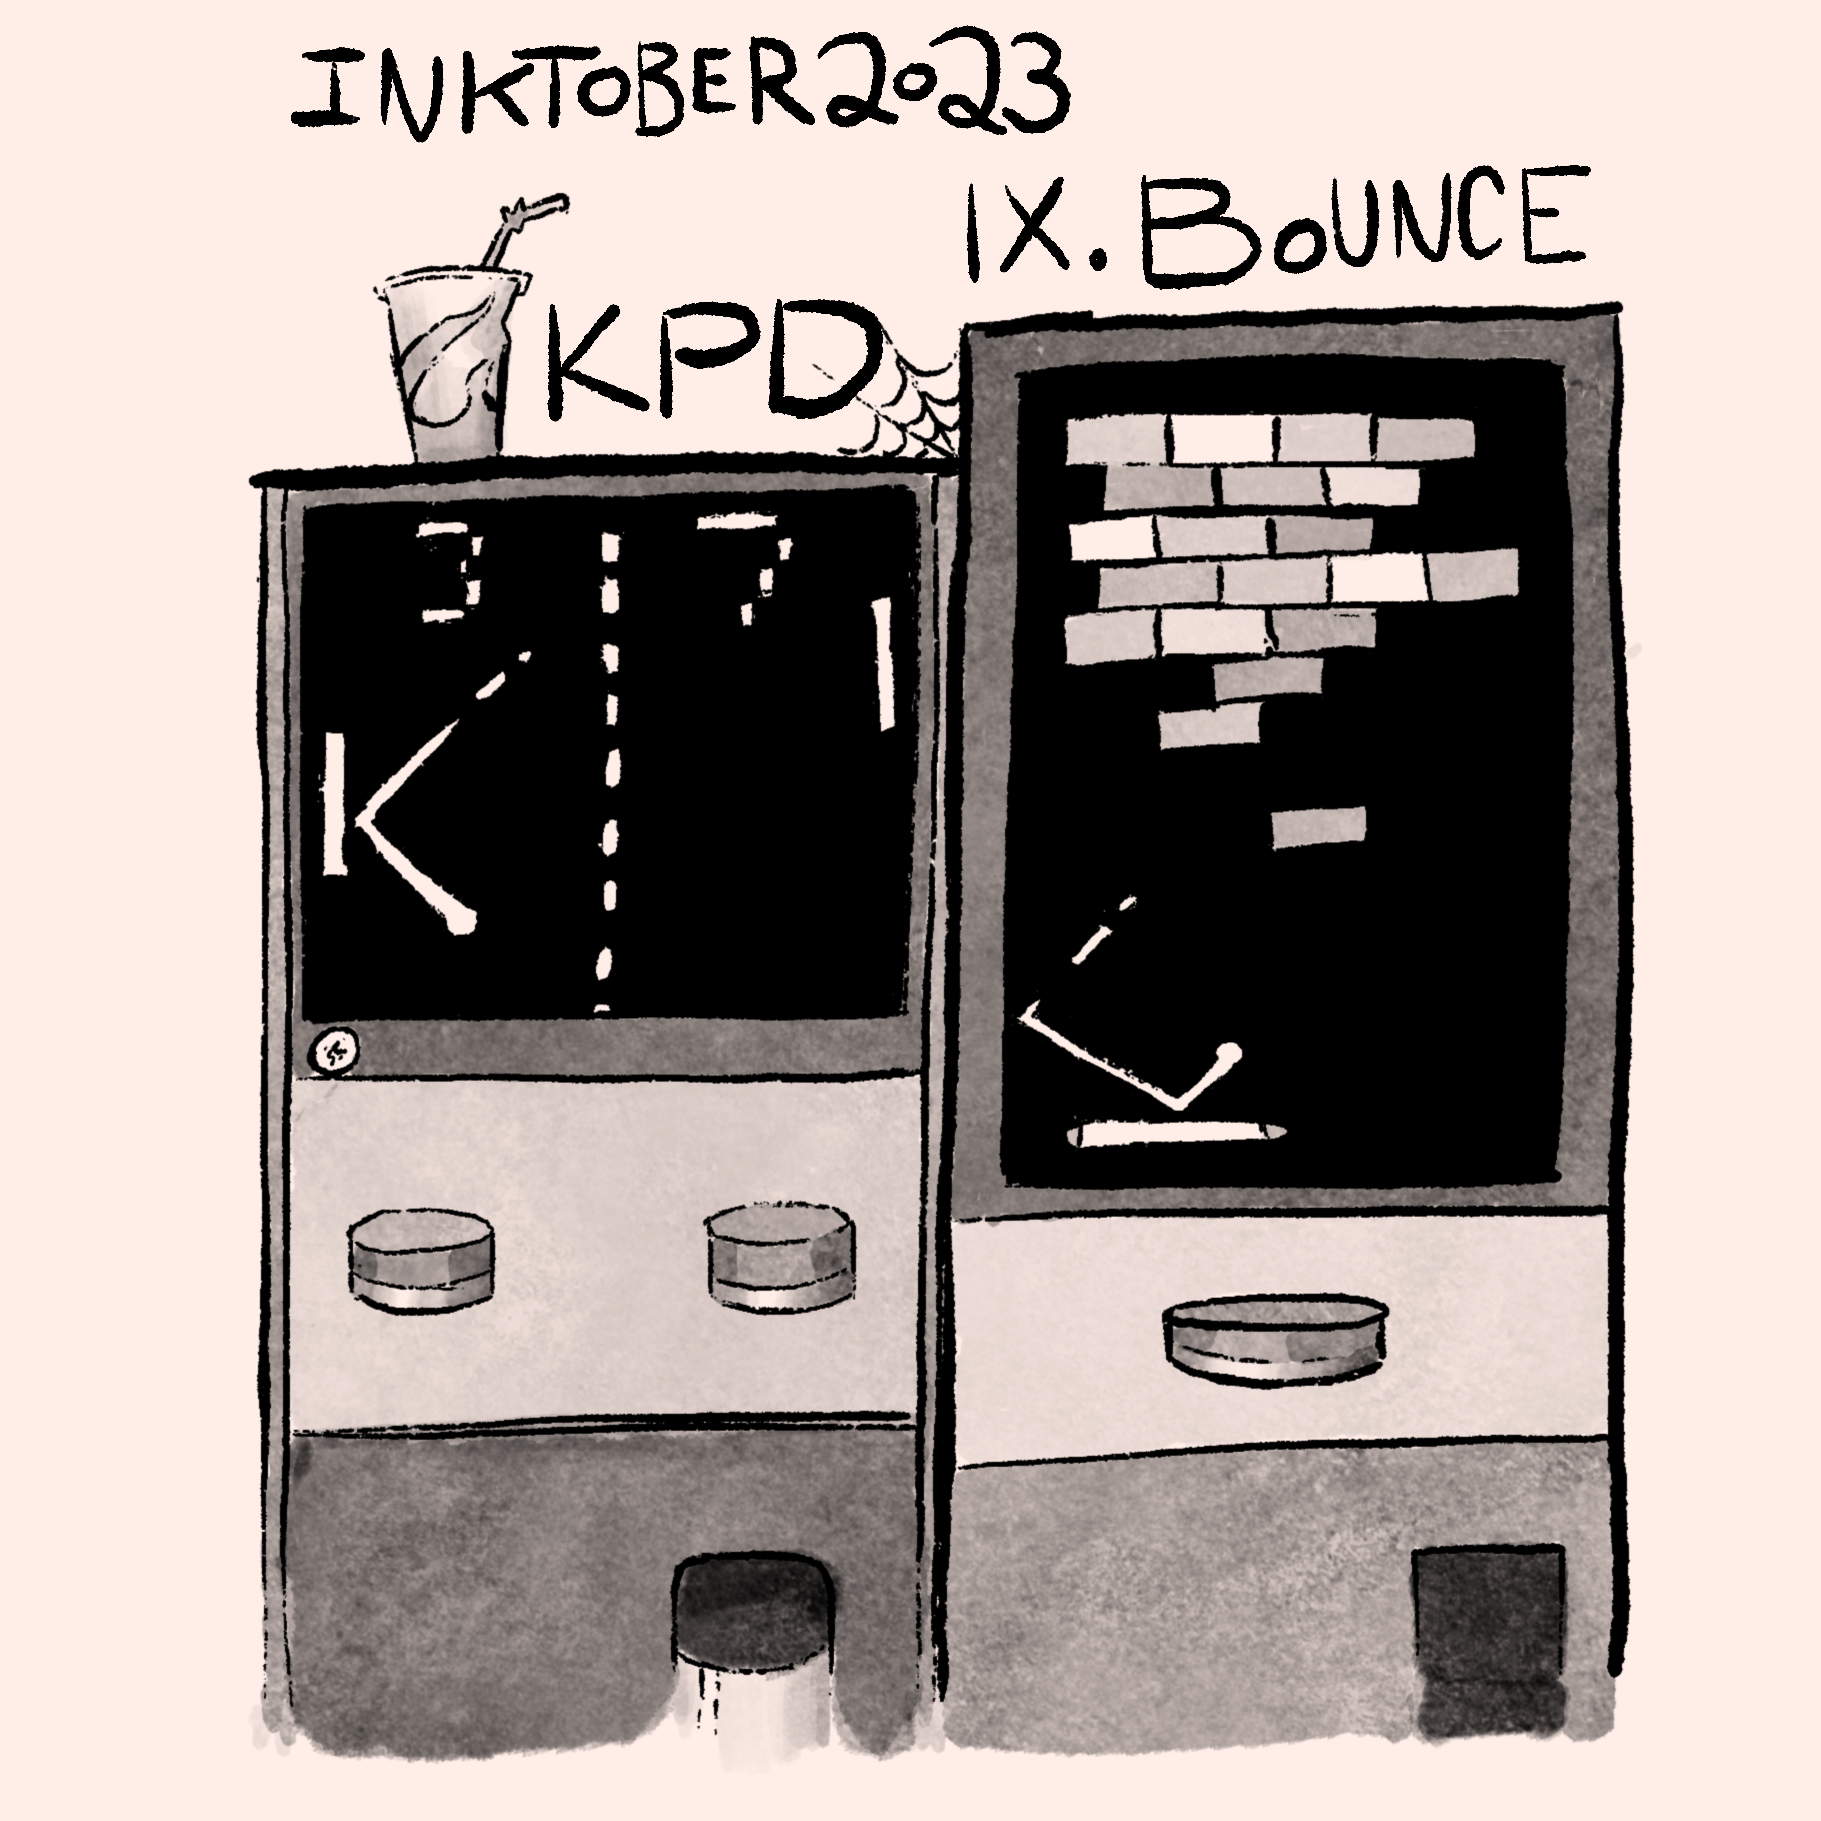 INKTOBER 2023
IX. BOUNCE
KPD
3 7